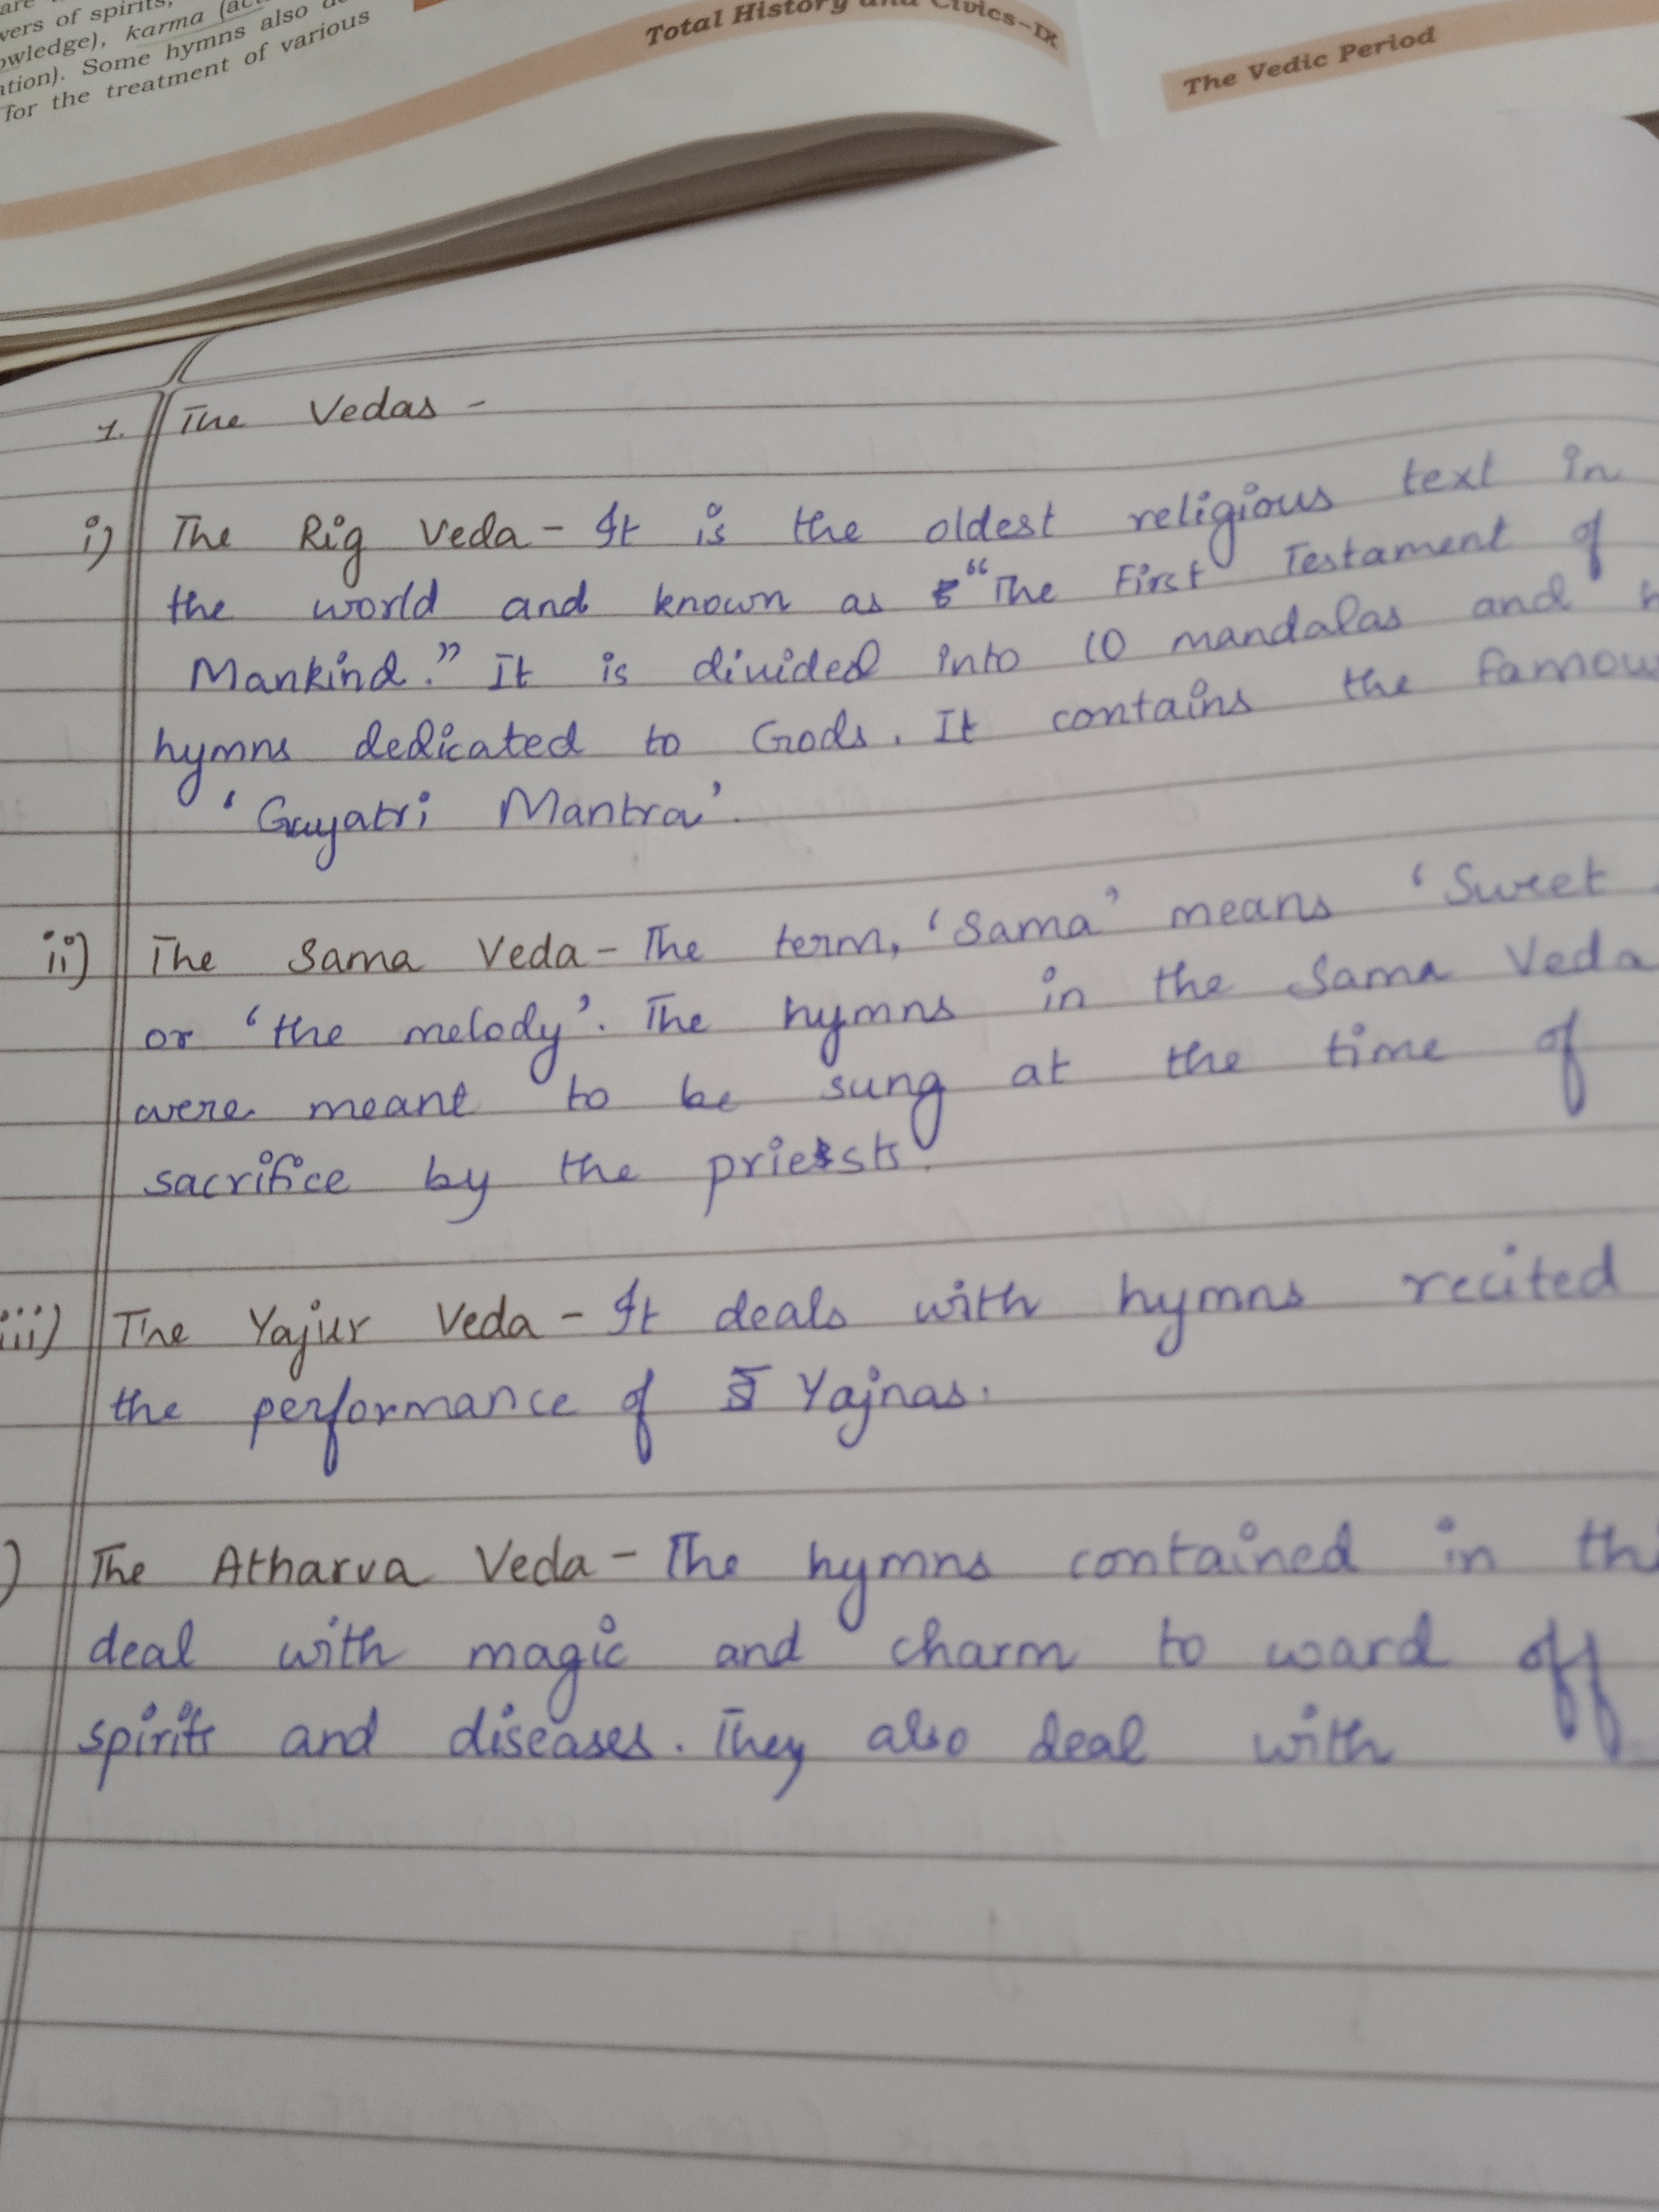 are
vers of spirits,
owledge), karma
ation). Some hymns also
for the treatment of various
Total History and Civics-IX
The Vedic Period
1. The Vedas -
i) The Rig Veda - It is the oldest religious text in
the world and known as "The First Testament of
Mankind." It is divided into 10 mandalas and
hymns dedicated to Gods. It contains the famou
'Gayatri Mantra'.
ii) The Sama Veda - The term, 'Sama' means 'Sweet
or 'the melody'. The hymns in the Sama Veda
were meant to be sung at the time of
sacrifice by the priests.
iii) The Yajur Veda - It deals with hymns recited
the performance of Yajnas.
) The Atharva Veda - The hymns contained in thi
deal with magic and charm to ward off
spirits and diseases. They also deal with